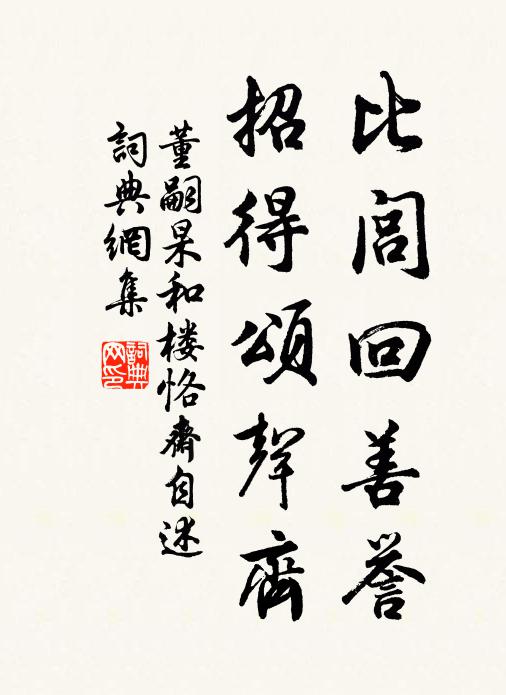 比閭回善誉
招得頌聲齊
董嗣杲和楼恪齋自述
詞典網集
詞典
网印